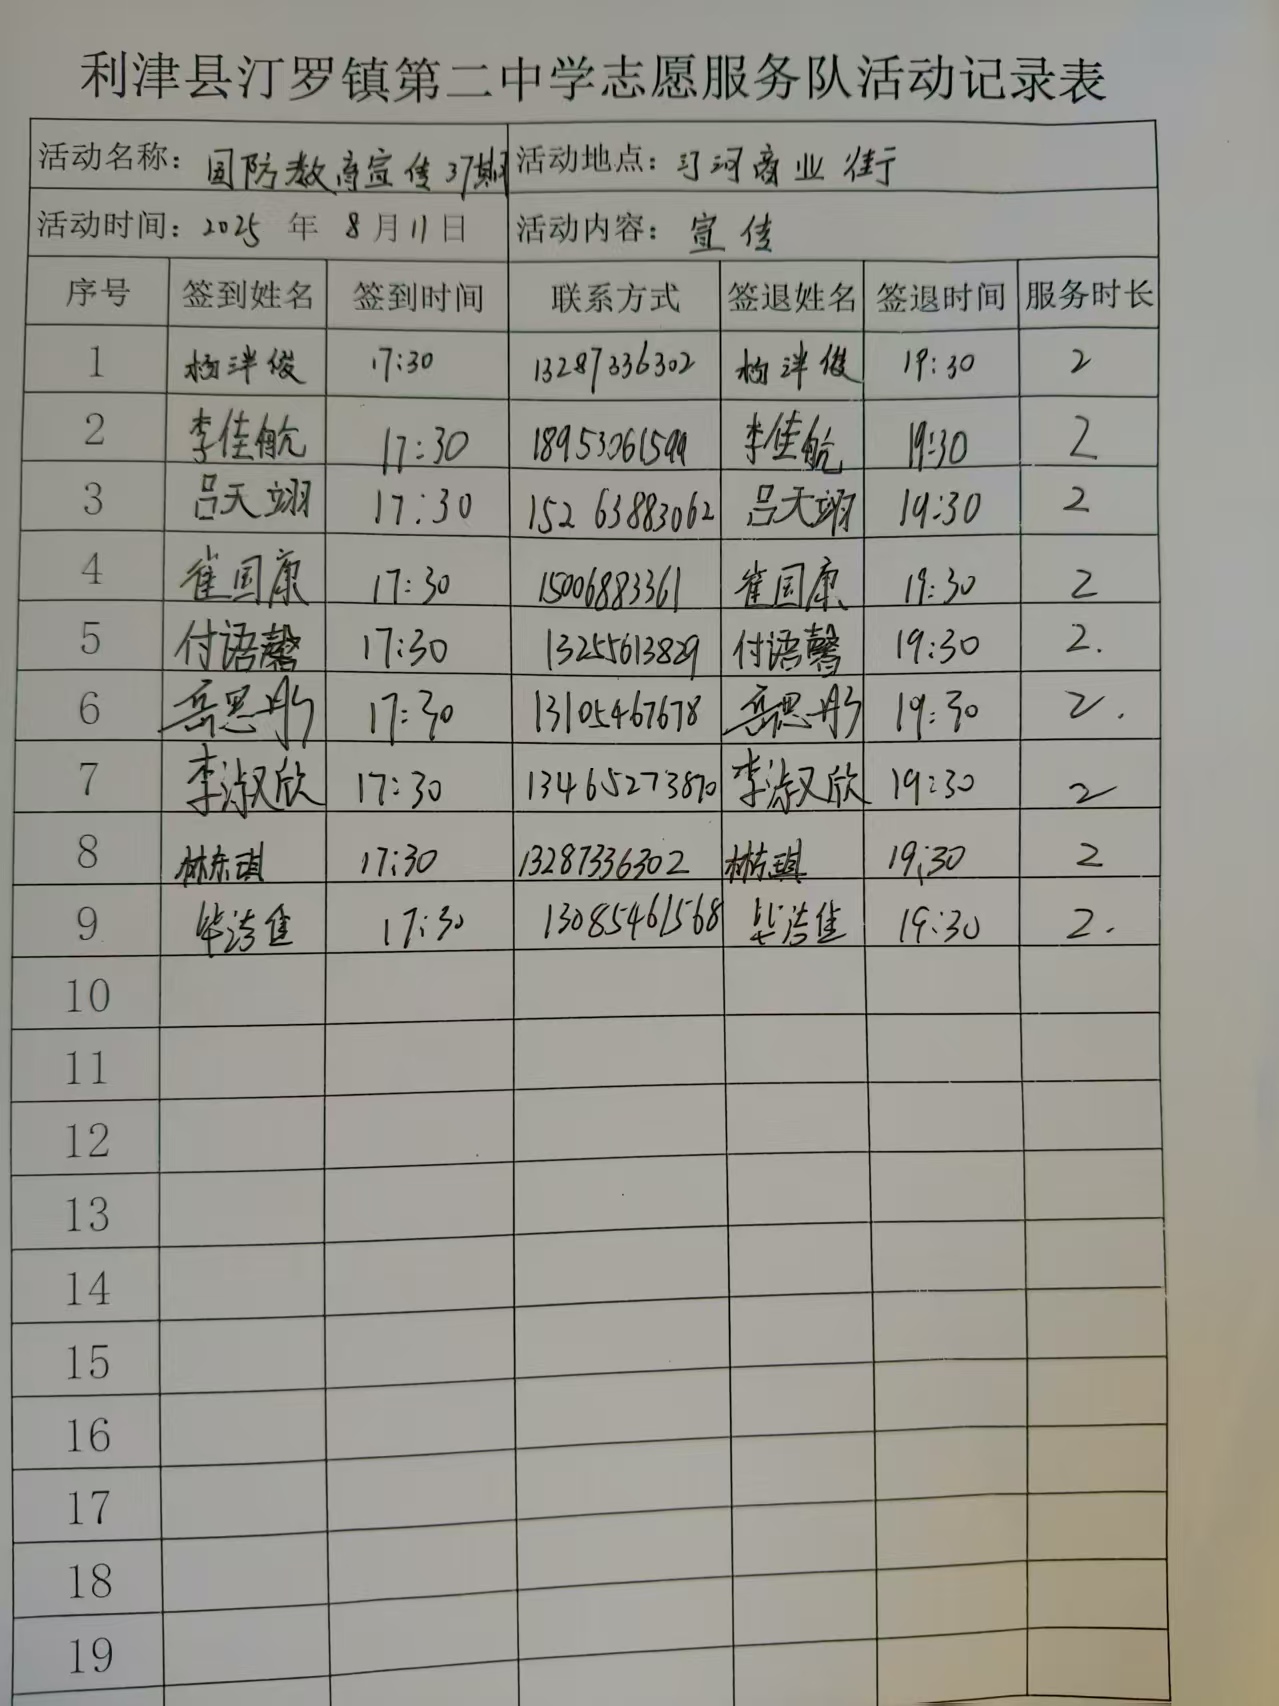 利津县汀罗镇第二中学志愿服务队活动记录表
活动名称：国防教育宣传37期 活动地点：汀河商业街
活动时间：2025 年 8 月 11 日 活动内容：宣传
序号 签到姓名 签到时间 联系方式 签退姓名 签退时间 服务时长
1 杨泮俊 17:30 13287336302 杨泮俊 19:30 2
2 李佳航 17:30 18953061599 李佳航 19:30 2
3 吕天翊 17:30 15263883062 吕天翊 19:30 2
4 崔国康 17:30 15006883361 崔国康 19:30 2
5 付语馨 17:30 13255613829 付语馨 19:30 2.
6 岳思彤 17:30 13105467678 岳思彤 19:30 2.
7 李淑欣 17:30 13465273870 李淑欣 19:30 2
8 林东琪 17:30 13287336302 林东琪 19:30 2
9 毕洁佳 17:30 13085461568 毕洁佳 19:30 2.
10
11
12
13
14
15
16
17
18
19